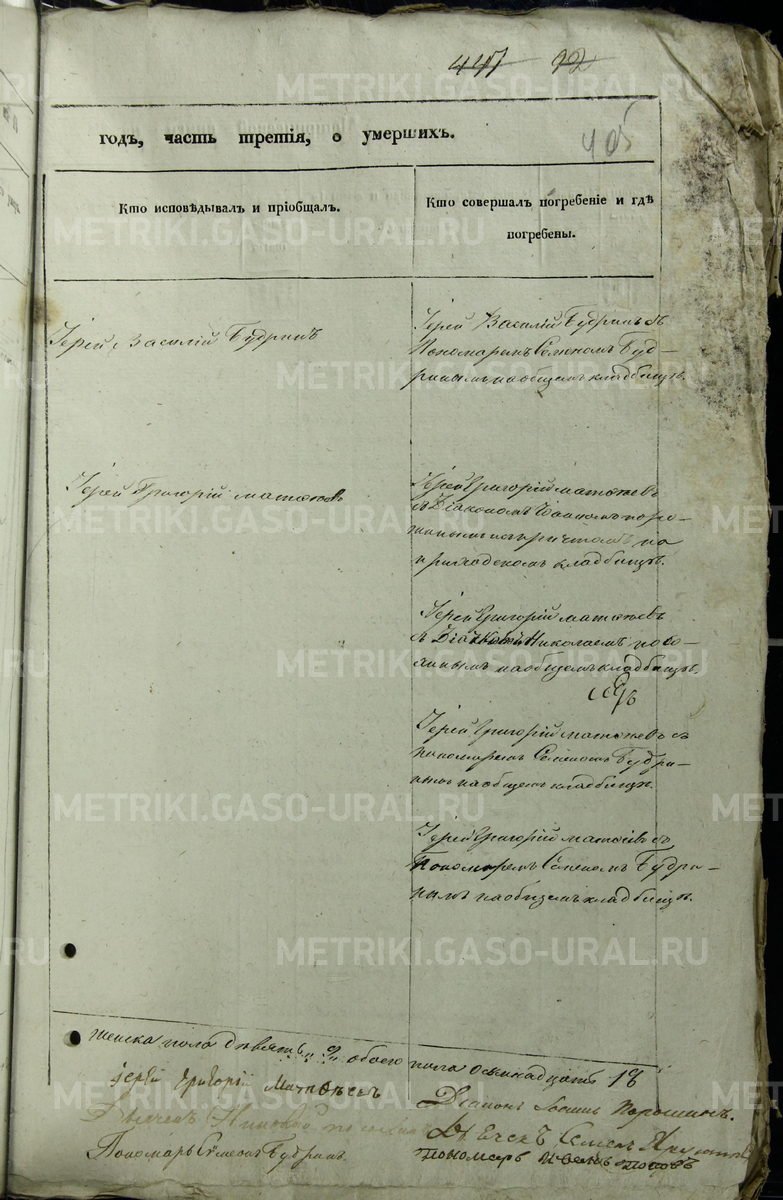 447 92
405
годъ, часть третія, о умершихъ.
Кто исповѣдывалъ и пріобщалъ.
Кто совершалъ погребеніе и гдѣ
погребены.
Іерей Василій Будринъ
Іерей Василій Будринъ съ
Пономаремъ Семеномъ Буд-
ринымъ на общемъ кладбищѣ.
Іерей Григорій Матѳѣевъ
Іерей Григорій Матѳѣевъ
съ Діакономъ Іоанномъ Поро-
шинымъ и съ причтомъ на
приходскомъ кладбищѣ.
Іерей Григорій Матѳѣевъ
съ Николаемъ
на общемъ кладбищѣ.
Іерей Григорій Матѳѣевъ съ
пономаремъ Семеномъ Будри-
нымъ на общемъ кладбищѣ.
Іерей Григорій Матѳѣевъ съ
Пономаремъ Семеномъ Будри-
нымъ на общемъ кладбищѣ.
женска пола девять 9 обоего пола осмнадцать 18
іерей Григорій Матвѣевъ
Діаконъ Іоаннъ Порошинъ.
Дьячекъ Николай
Дьячекъ Семенъ
Пономарь Семенъ Будринъ.
пономарь Поповъ
METRIKI.GASO-URAL.RU